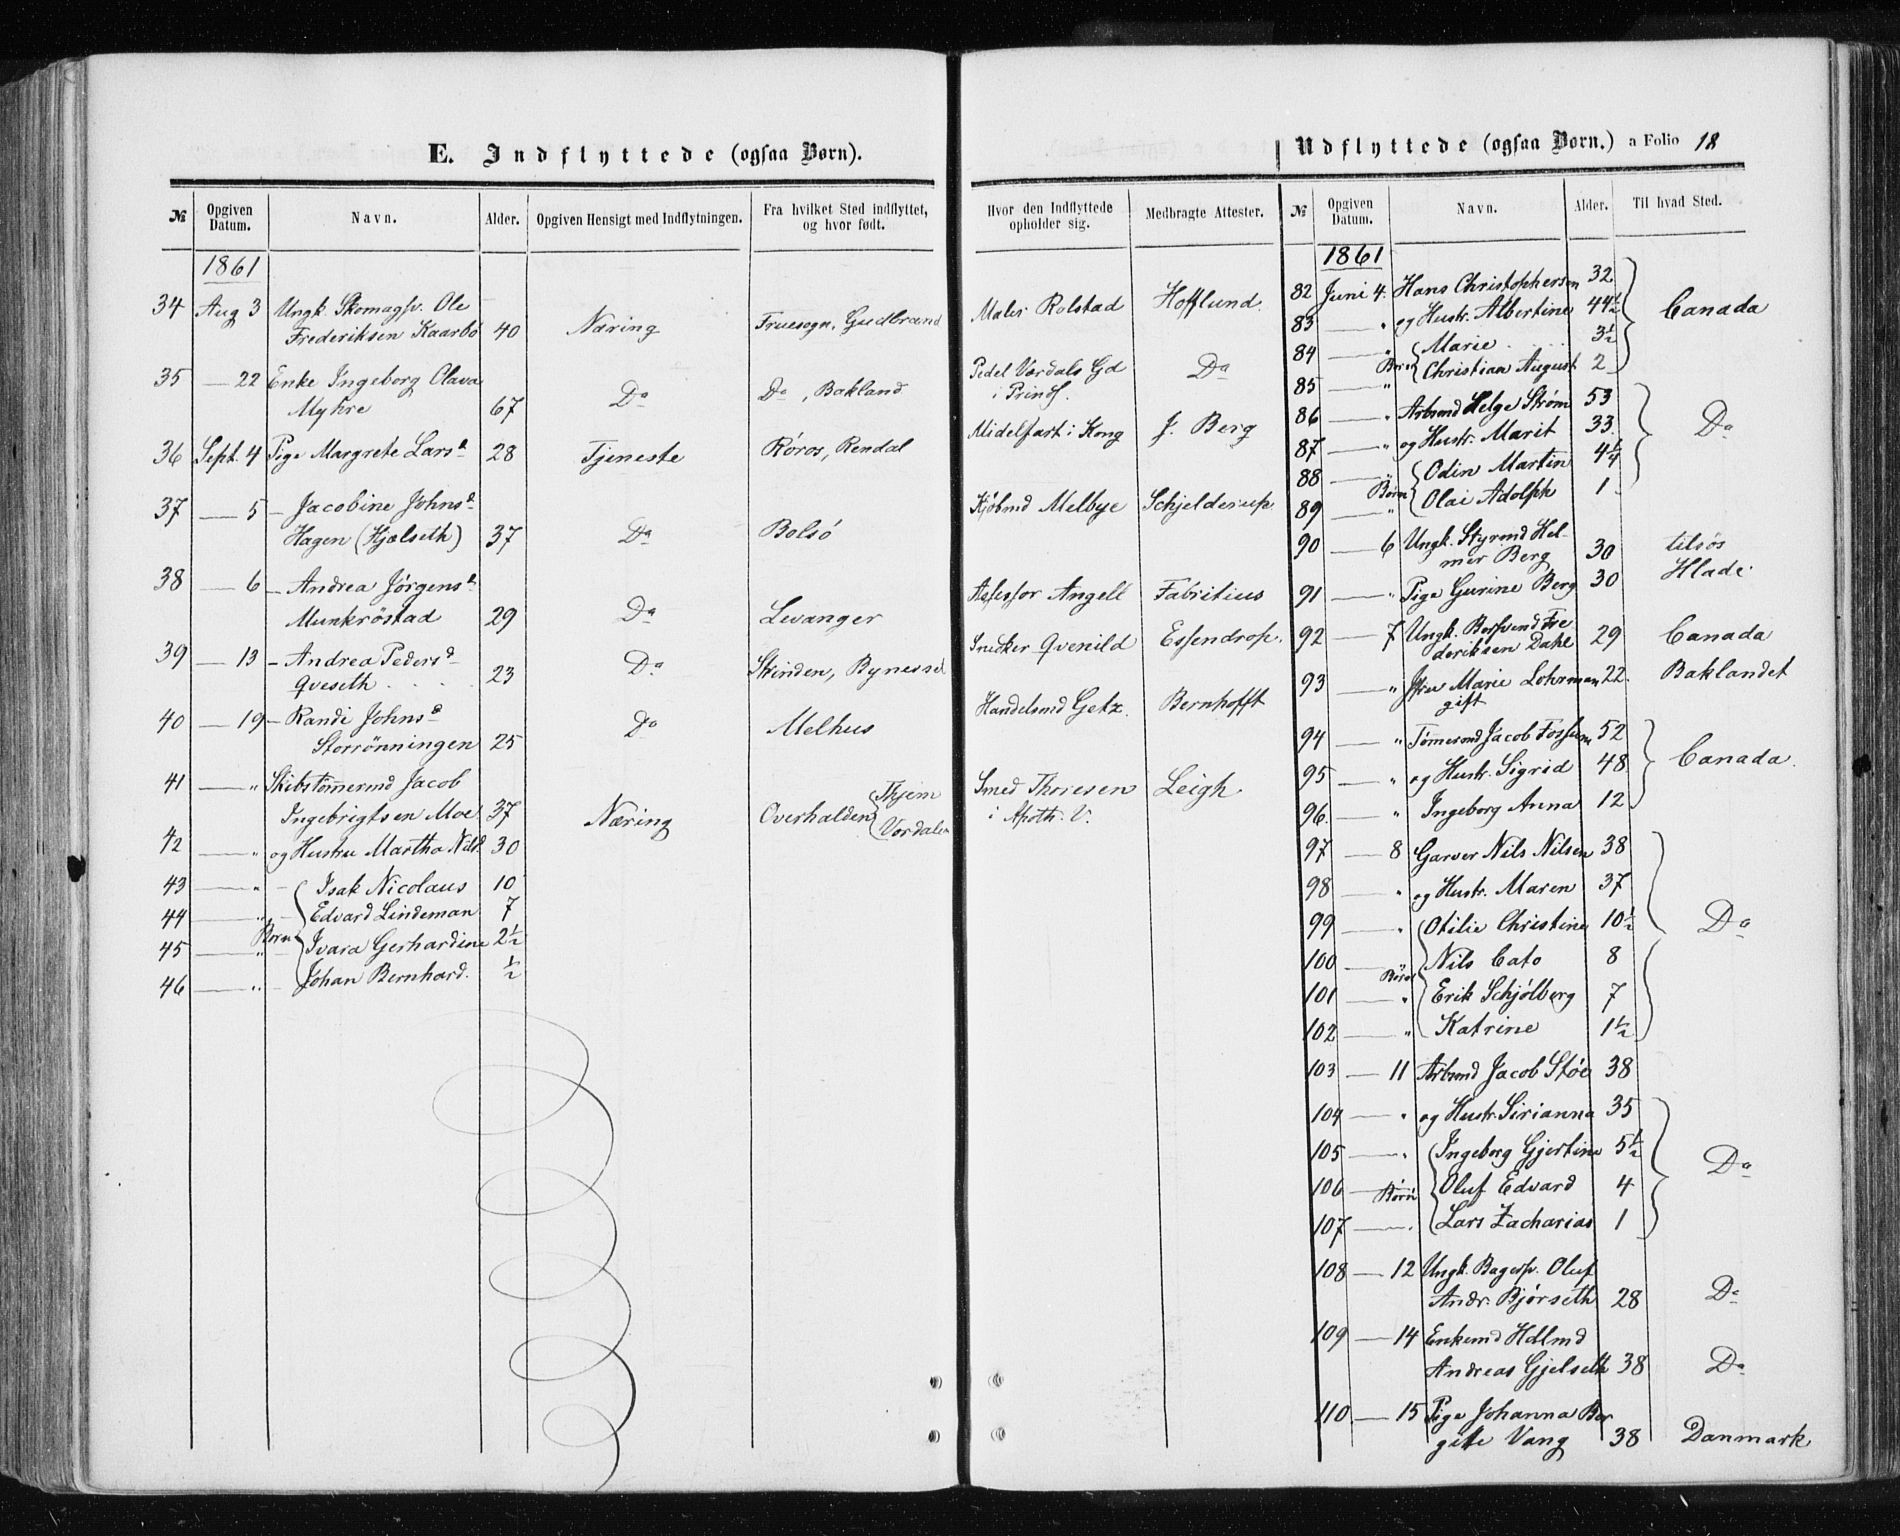 E. Indflyttede (ogsaa Børn).
№ Opgiven Datum. Navn. Alder. Opgiven Hensigt med Indflytningen. Fra hvilket Sted indflyttet, og hvor født.
1861
34 Aug 3 Ungk. Skomagsv. Ole
Frederiksen Kaarbø 40 Næring Fruesogn, Gudbrand
35 — 22 Enke Ingeborg Olava
Myhre 67 Do Do, Bakland
36 Sept. 4 Pige Margrete Larsd 28 Tjeneste Røros, Rendal
37 — 5 — Jacobine Johnsd
Hagen (Hjelseth) 37 Do Bolsö
38 — 6 — Andrea Jörgensd
Munkröstad 29 Do Levanger
39 — 13 — Andrea Pedersd
Qveseth 23 Do Strinden, Bynesset
40 — 19 — Randi Johnsd
Storrönningen 25 Do Melhus
41 — " Skibstömmermd Jacob
Ingebrigtsen Moe 37 Næring Overhalden { Thjem
Vordalen
42 — " og Hustru Martha Nilsd. 30
43 — " — Isak Nicolaus 10
44 — " — Edvard Lindeman 7
Børn
45 — " — Ivara Gerhardine 2½
46 — " — Johan Bernhard. ½
Hvor den Indflyttede opholder sig. Medbragte Attester.
Maler Rolstad Hofflund.
Pedel Værdals Gd Do
i Prinds.
Midelfart i Kong J. Berg
Kjöbmd Melbye Schjelderup
Assessor Angell Fabritius
Snedker Qvenild Essendrop.
Handelsmd Getz. Bernhofft
Smed Thoresen Leigh.
i Apoth. V.
Udflyttede (ogsaa Børn.) a Folio 18
№ Opgiven Datum. Navn. Alder. Til hvad Sted.
1861
82 Juni 4. Hans Christophersen 32
83 — " og Hustr. Albertine 44½ Canada
84 — " Marie 3½
Børn
85 — " Christian August 2
86 — " Arbmd Helge Ström 53
87 — " og Hustr. Marit 33 Do
88 — " Odin Martin 4¼
Børn
89 — " Olai Adolph 1
90 — 6 Ungk. Styrmd Hel-
mer Berg 30 tilsös
91 — " Pige Gurine Berg 30 Hlade
92 — 7 Ungk. Fre
deriksen Dahl 29 Canada
93 — " Jfru Marie Lohrman 22. Baklandet
gift
94 — " Tömmermd Jacob Fossum 52
95 — " og Hustr. Sigrid 48 Canada.
96. — " Ingeborg Anna 12
97 — 8 Garver Nils Nilsen 38
98 — " og Hustr. Maren 37
99 — " Otilie Christine 10½ Do
100 — " Nils Cato 8
Børn
101 — " Erik Schjölberg 7
102 — " Katrine 1½
103 — 11 Arbmd Jacob Stöe 38
104 — " og Hustr. Sirianna 35
105 — " Ingeborg Gjertine 5½ Do
106 — Børn Oluf Edvard 4
107 — " Lars Zacharias 1
108 — 12 Ungk. Bagersv. Oluf
Andr. Bjørseth 28 Do
109 — 14 Enkemd Hdlmd
Andreas Gjelseth 38 Do
110 — 15 Pige Johanna Bor
gite Vang 38 Danmark